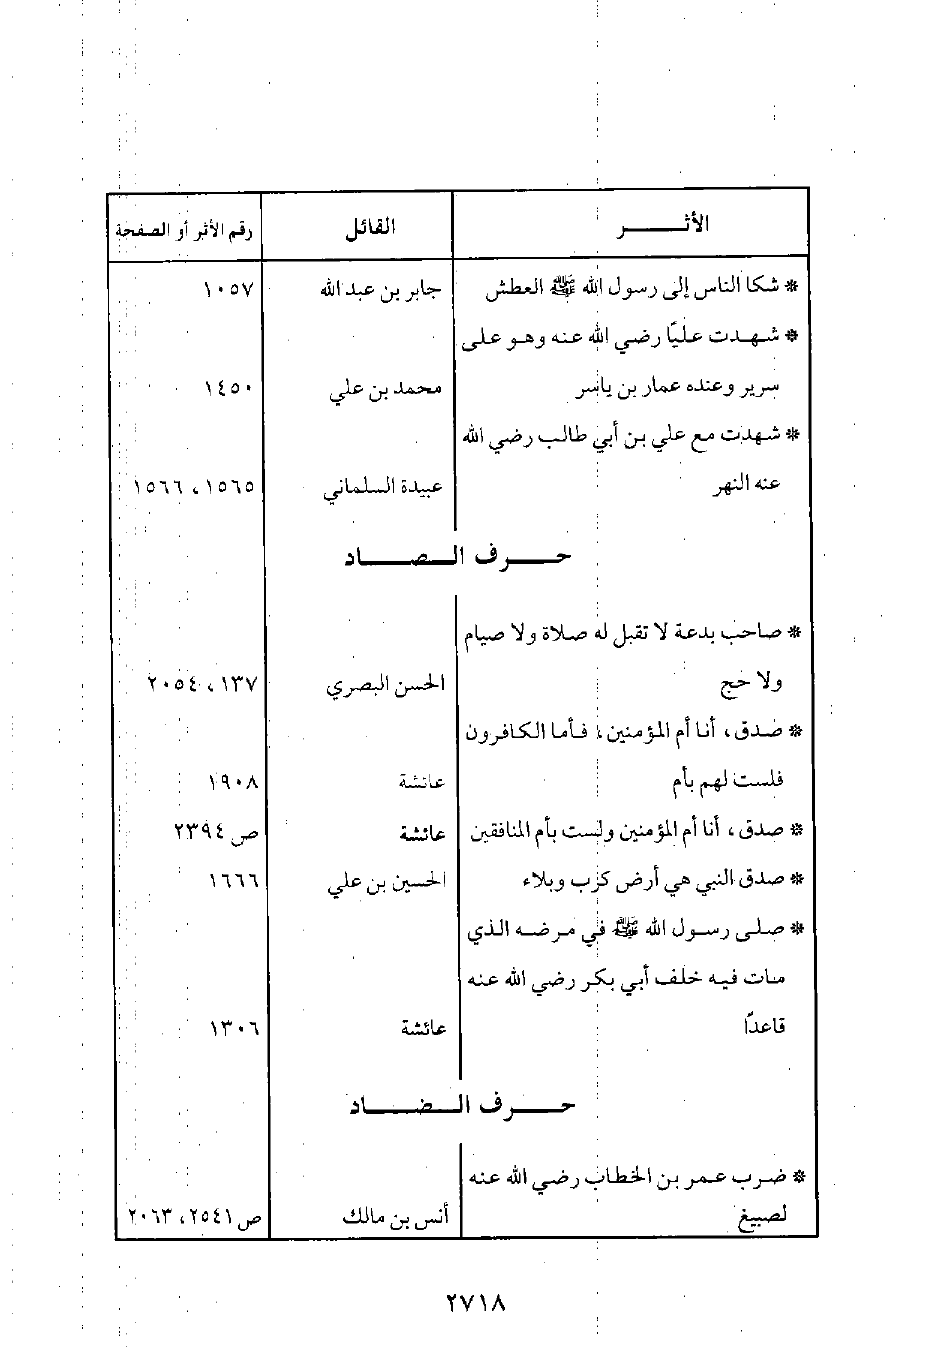 الأثـــر القائل رقم الأثر أو الصفحة
* شكا الناس إلى رسول الله ﷺ العطش جابر بن عبد الله ١٠٥٧
* شهدت عليًا رضي الله عنه وهو على
سرير وعنده عمار بن ياسر محمد بن علي ١٤٥٠
* شهدت مع علي بن أبي طالب رضي الله
عنه النهر عبيدة السلماني ١٥٦٥، ١٥٦٦
حـــرف الـــصـــاد
* صاحب بدعة لا تقبل له صلاة ولا صيام
ولا حج الحسن البصري ١٣٧، ٢٠٥٤
* صدق، أنا أم المؤمنين، فأما الكافرون
فلست لهم بأم عائشة ١٩٠٨
* صدق، أنا أم المؤمنين ولست بأم المنافقين عائشة ص ٢٣٩٤
* صدق النبي هي أرض كرب وبلاء الحسين بن علي ١٦٦٦
* صلى رسول الله ﷺ في مرضه الذي
مات فيه خلف أبي بكر رضي الله عنه
قاعدًا عائشة ١٣٠٦
حـــرف الـــضـــاد
* ضرب عمر بن الخطاب رضي الله عنه
لصبيغ أنس بن مالك ص ٢٥٤١، ٢٠٦٣
٢٧١٨